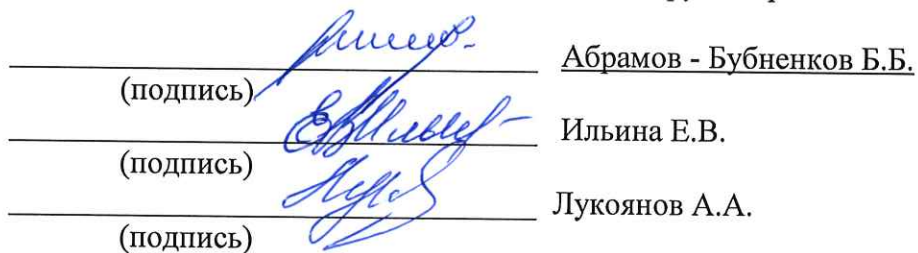 Абрамов - Бубненков Б.Б.
(подпись)
Ильина Е.В.
(подпись)
Лукоянов А.А.
(подпись)